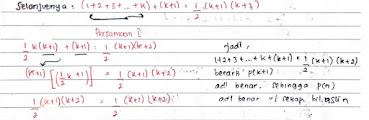 Selanjutnya : (1+2+3+...+k) + (k+1) = 1/2 (k+1) (k+2)
Persamaan I
1/2 k(k+1) + (k+1) = 1/2 (k+1)(k+2)
(k+1) [(1/2 k+1)] = 1/2 (k+1) (k+2)
1/2 (k+1)(k+2) = 1/2 (k+1) (k+2)
Jadi,
1+2+3+...+k+(k+1) = 1/2 (k+1) (k+2)
berarti p(k+1)
adl benar. Sehingga p(n)
adl benar ut setiap bil. asli n